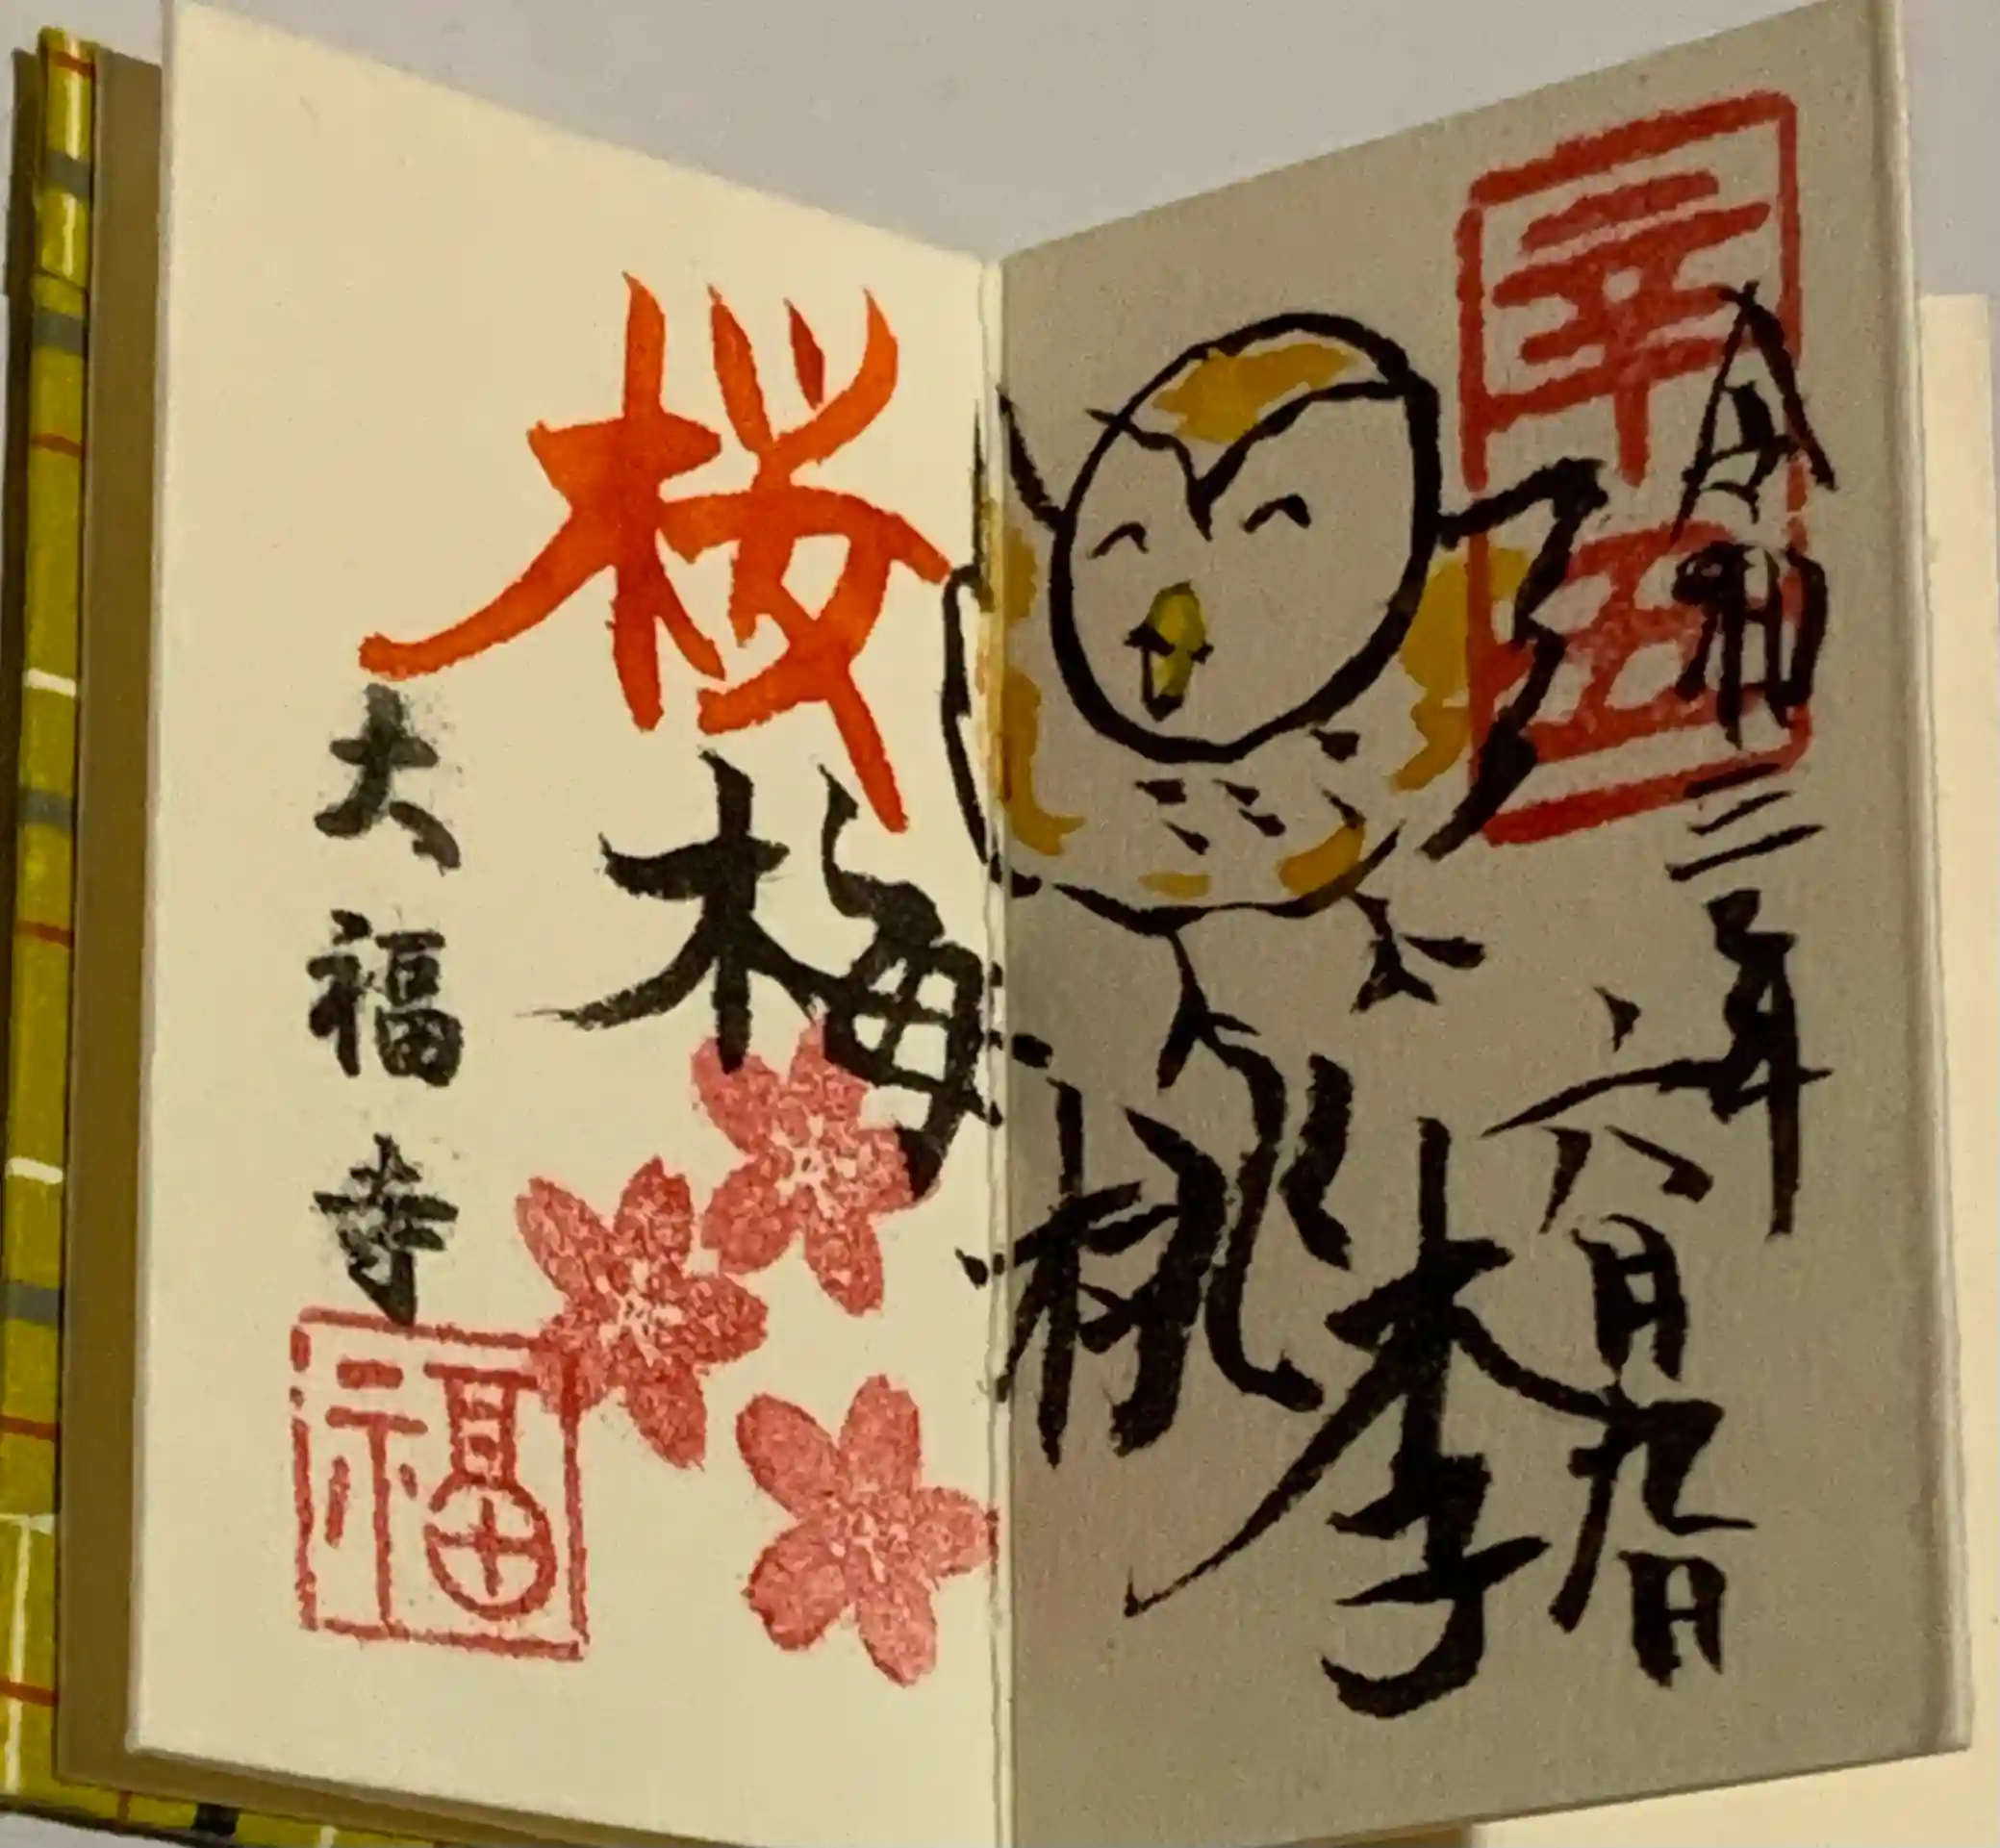 幸
令和三年
六月九日
桜
梅
桃
李
大福寺
福